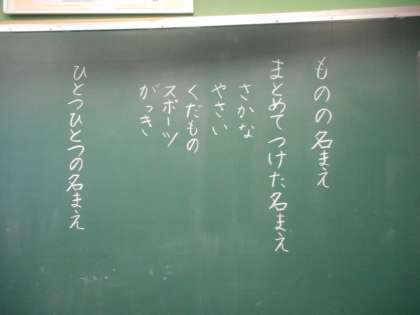 ものの名まえ
まとめてつけた名まえ
さかな
やさい
くだもの
スポーツ
がっき
ひとつひとつの名まえ